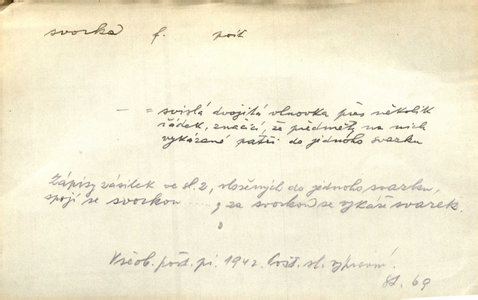 svorka f. pošt
— = svislá dvojitá vlnovka přes několik
řádek, značící, že předměty na nich
vykázané patří do jednoho svazku
Zápisy zásilek ve sl. 2, vložených do jednoho svazku,
spojí se svorkou ..., za svorkou se vykáže svazek.
Všeob. pošt. př. 1942. Pošt. sl. výpravní.
St. 69